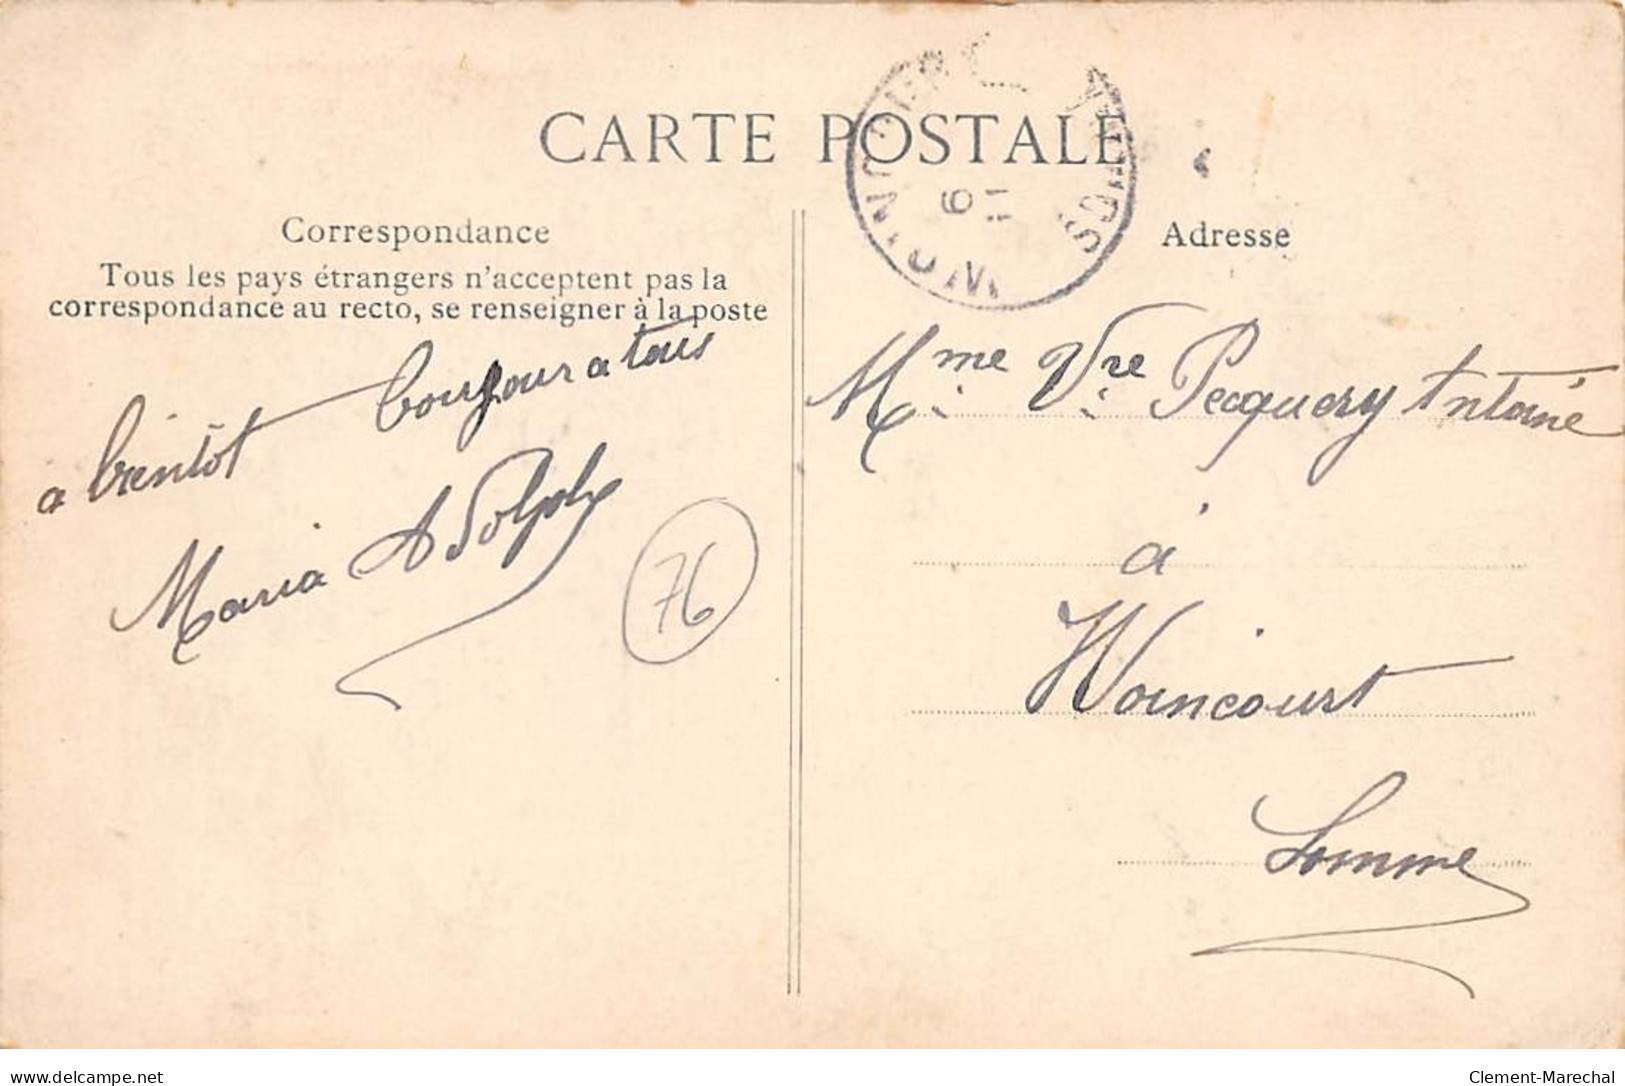 CARTE POSTALE
Correspondance
Tous les pays étrangers n'acceptent pas la
correspondance au recto, se renseigner à la poste
a bientôt bonjour a tous
Maria Adolphe
76
Adresse
Mme Vve Pecquery Antoine
à
Woincourt
Somme
6
11
delcampe.net
Clement-Marechal